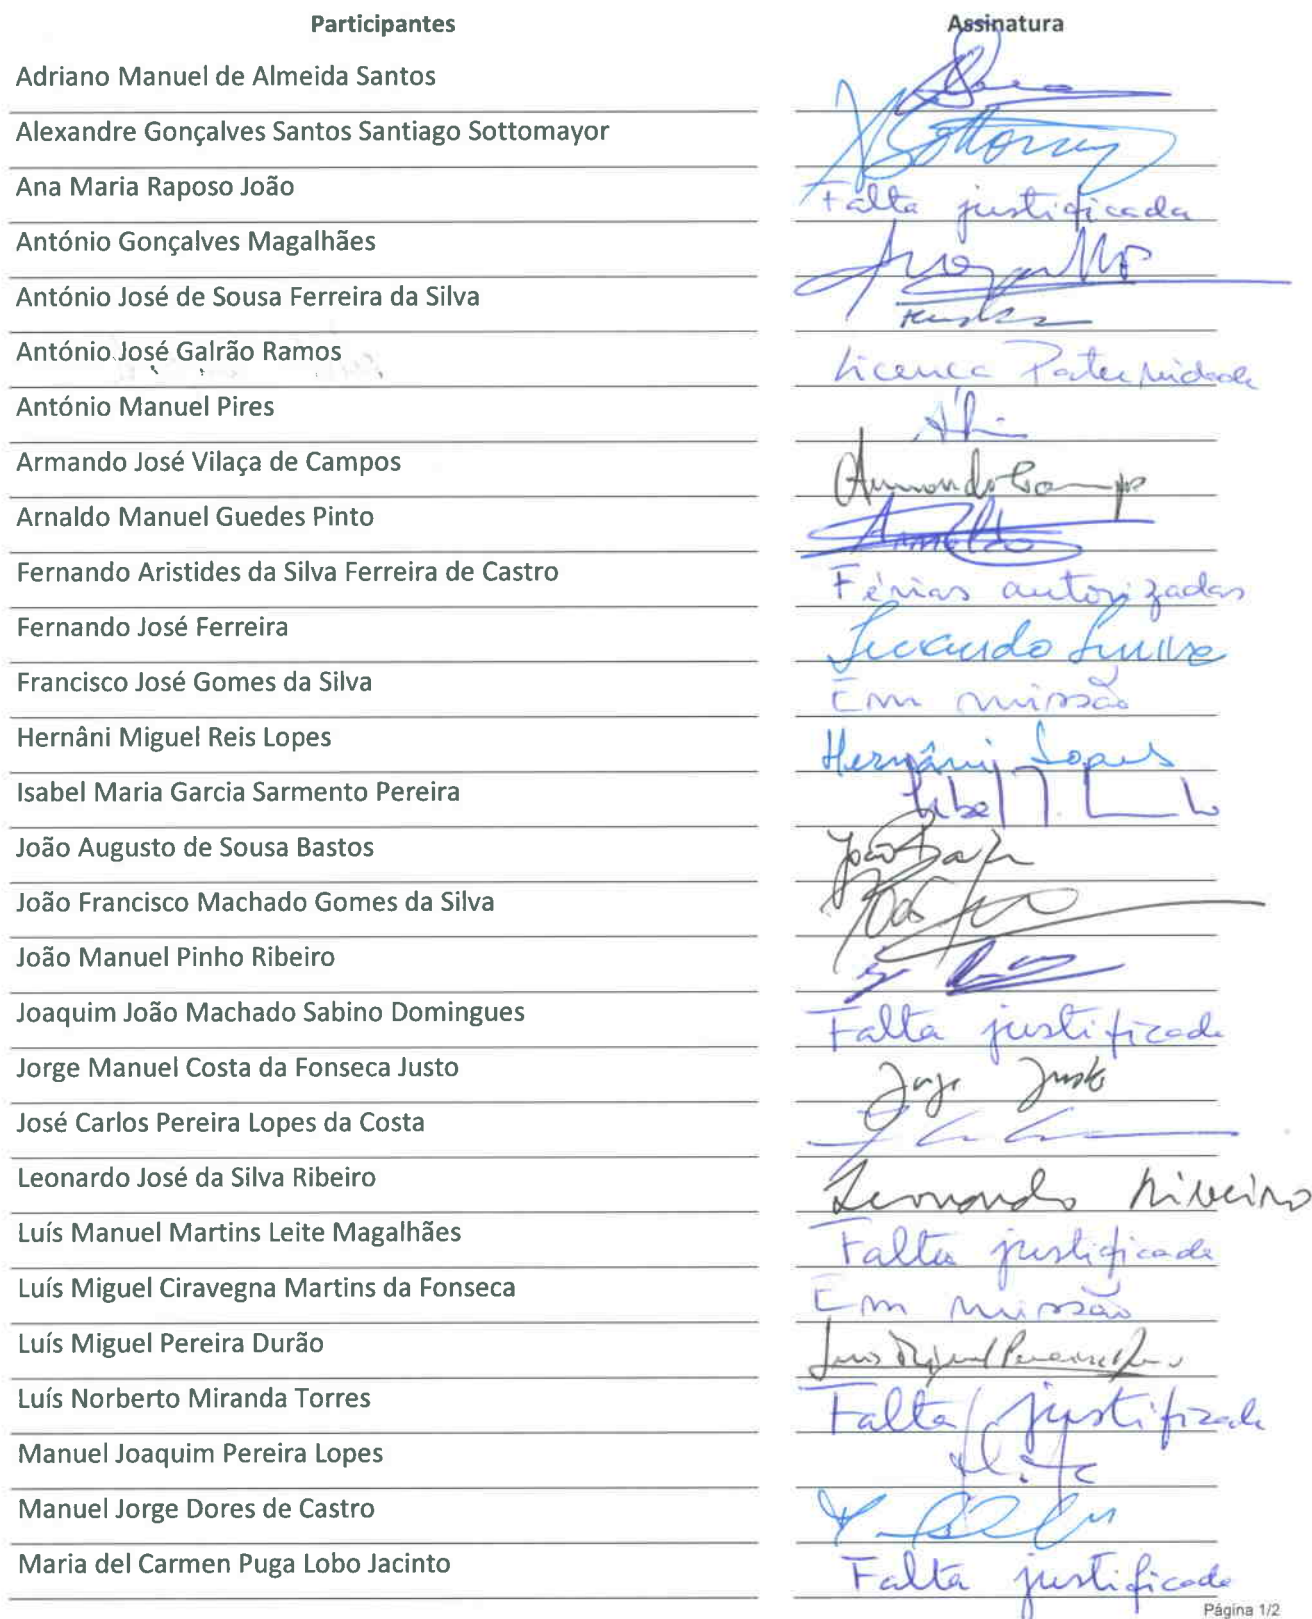 Participantes Assinatura
Adriano Manuel de Almeida Santos
Alexandre Gonçalves Santos Santiago Sottomayor Sottomay
Ana Maria Raposo João Falta justificada
António Gonçalves Magalhães
António José de Sousa Ferreira da Silva
António José Galrão Ramos Licença Paternidade
António Manuel Pires
Armando José Vilaça de Campos Armando Campos
Arnaldo Manuel Guedes Pinto Arnaldo
Fernando Aristides da Silva Ferreira de Castro Férias autorizadas
Fernando José Ferreira Fernando Ferreira
Francisco José Gomes da Silva Em missão
Hernâni Miguel Reis Lopes Hernâni Lopes
Isabel Maria Garcia Sarmento Pereira Isabel
João Augusto de Sousa Bastos João Bastos
João Francisco Machado Gomes da Silva João
João Manuel Pinho Ribeiro
Joaquim João Machado Sabino Domingues Falta justificada
Jorge Manuel Costa da Fonseca Justo Jorge Justo
José Carlos Pereira Lopes da Costa
Leonardo José da Silva Ribeiro Leonardo Ribeiro
Luís Manuel Martins Leite Magalhães Falta justificada
Luís Miguel Ciravegna Martins da Fonseca Em missão
Luís Miguel Pereira Durão Luís Miguel Pereira
Luís Norberto Miranda Torres Falta justificada
Manuel Joaquim Pereira Lopes
Manuel Jorge Dores de Castro
Maria del Carmen Puga Lobo Jacinto Falta justificada
Página 1/2